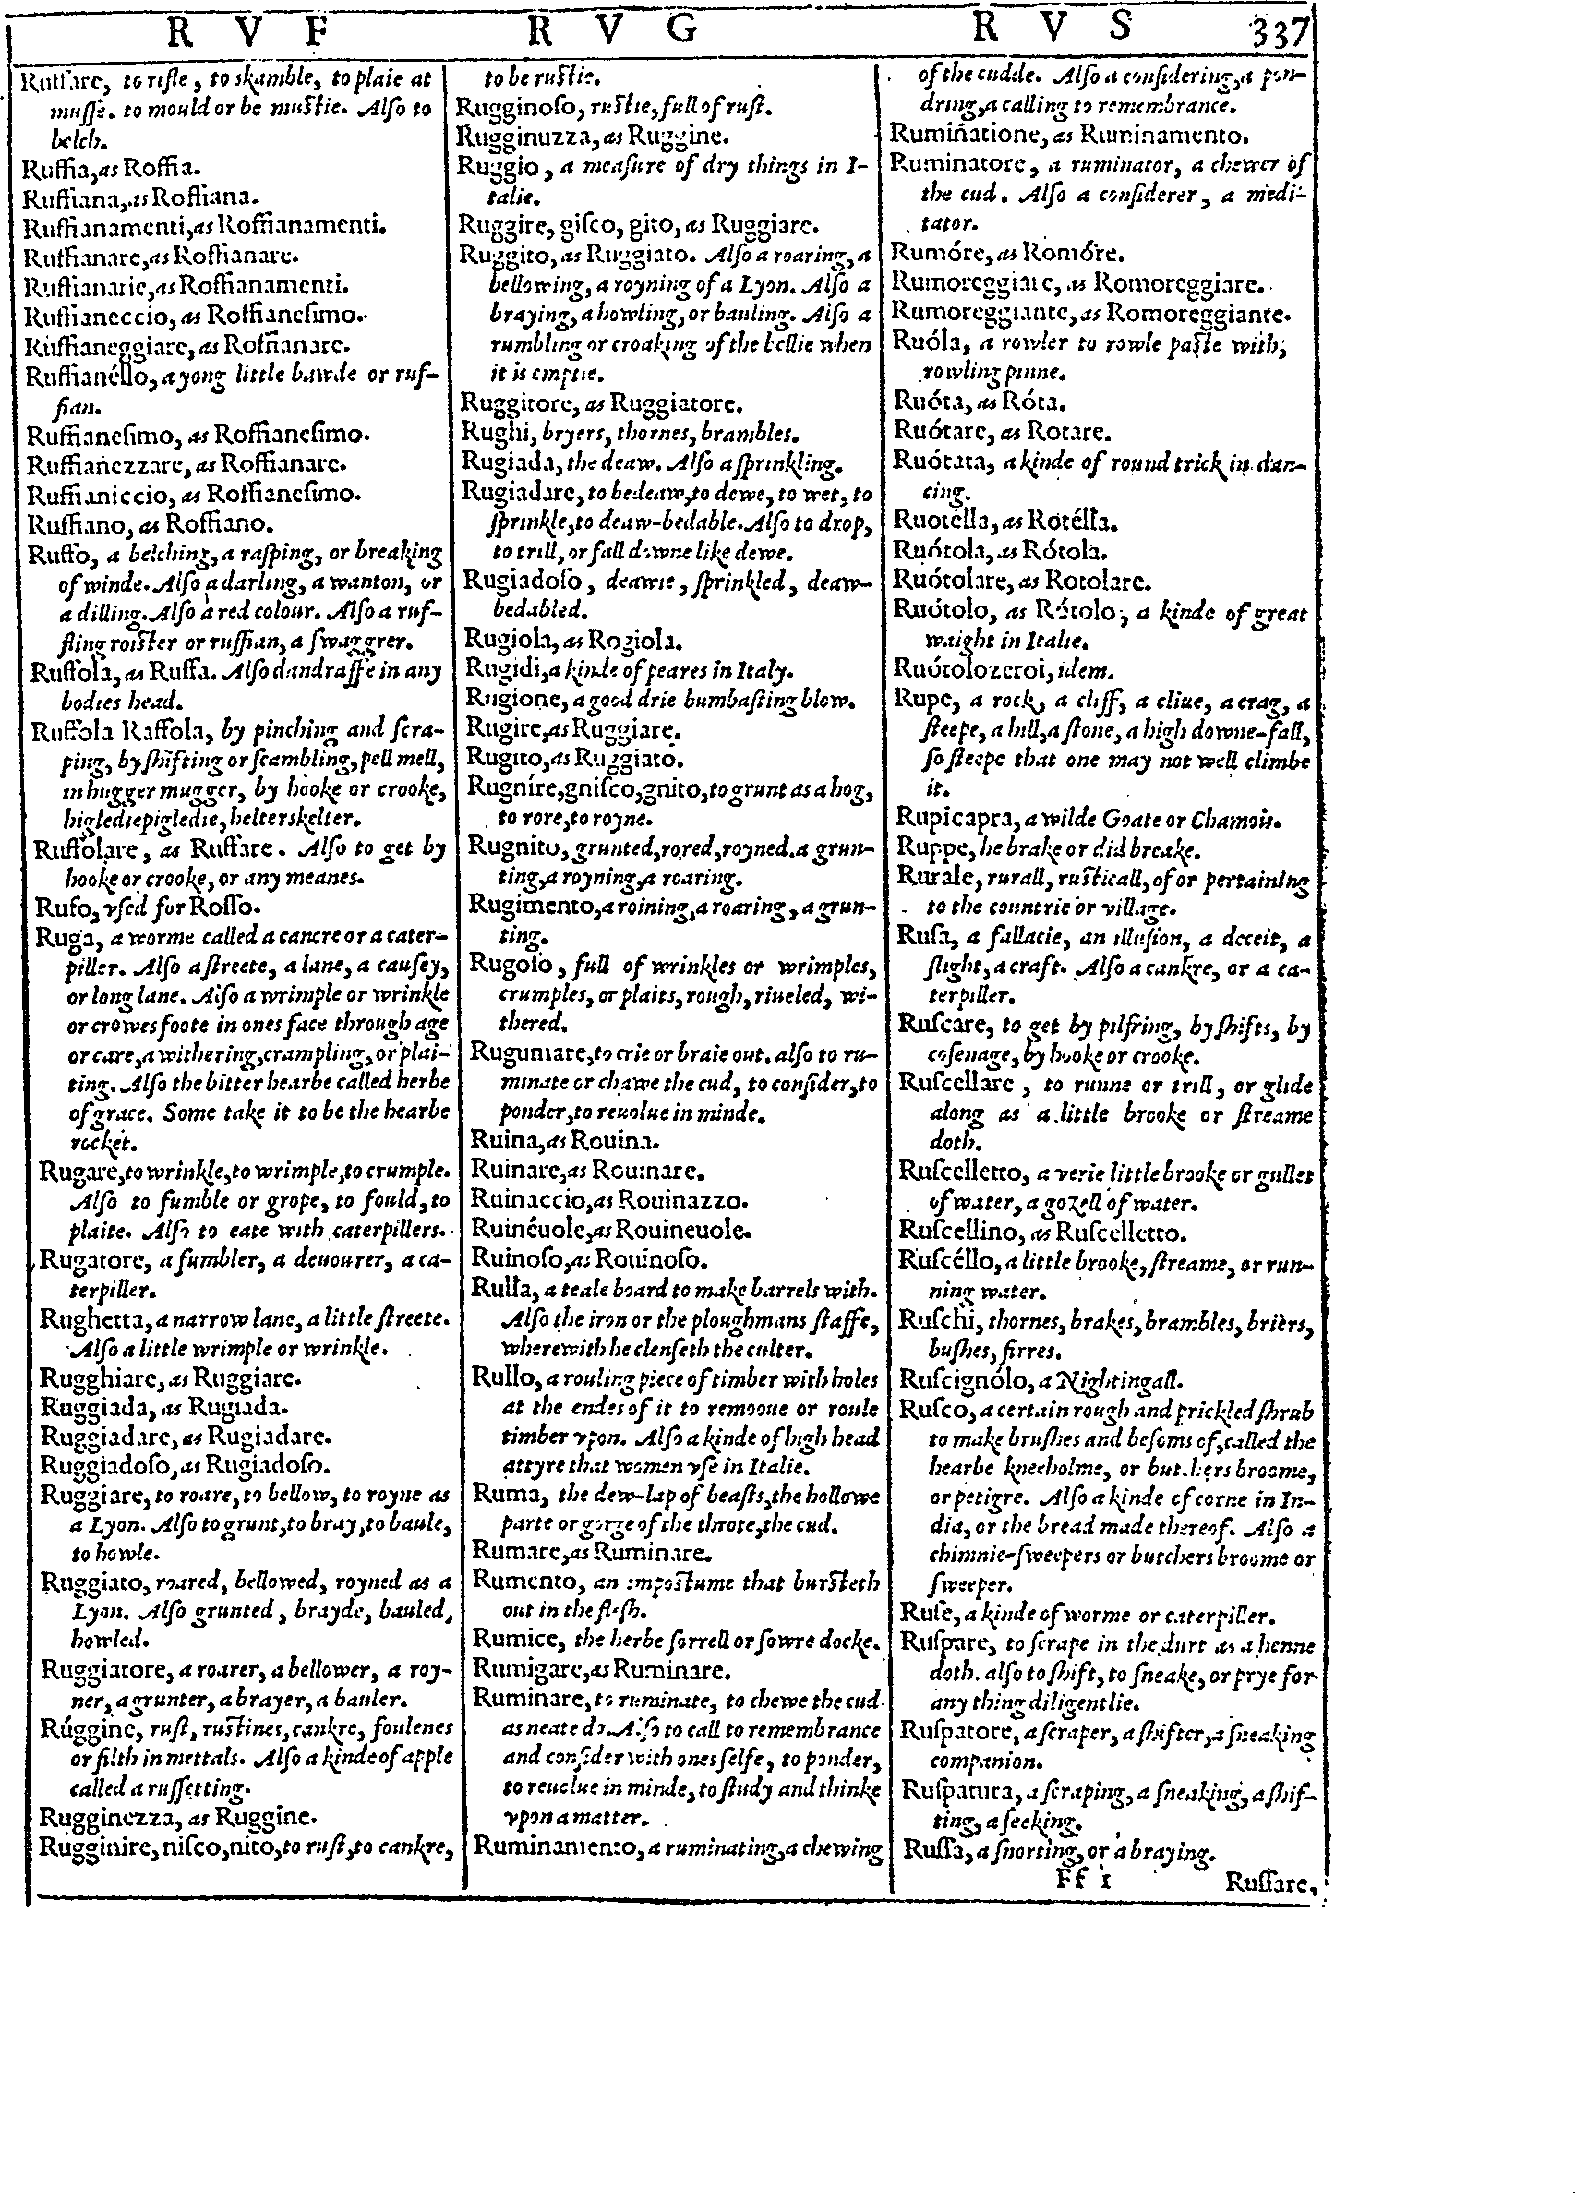 R V F
R V G
R V S
337
Ruffare, to rifle, to skamble, to plaie at
musse. to mould or be mustie. Also to
belch.
Ruffia, as Roffia.
Ruffiana, as Roffiana.
Ruffianamenti, as Roffianamenti.
Ruffianare, as Roffianare.
Ruffianarie, as Roffianamenti.
Ruffianeccio, as Roffianesimo.
Ruffianeggiare, as Roffianare.
Ruffianéllo, a yong little bawde or ruf-
fian.
Ruffianesimo, as Roffianesimo.
Ruffianezzare, as Roffianare.
Ruffianiccio, as Roffianesimo.
Ruffiano, as Roffiano.
Ruffo, a belching, a rasping, or breaking
of winde. Also a darling, a wanton, or
a dilling. Also a red colour. Also a ruf-
fling roister or ruffian, a swaggrer.
Ruffola, as Ruffa. Also dandraffe in any
bodies head.
Ruffola Raffola, by pinching and scra-
ping, by shifting or scambling, pell mell,
in hugger mugger, by hooke or crooke,
higledie pigledie, helterskelter.
Ruffolare, as Ruffare. Also to get by
hooke or crooke, or any meanes.
Rufo, vsed for Rosso.
Ruga, a worme called a cancre or a cater-
piller. Also a streete, a lane, a causey,
or long lane. Also a wrimple or wrinkle
or crowes foote in ones face through age
or care, a withering, crampling, or plai-
ting. Also the bitter hearbe called herbe
of grace. Some take it to be the hearbe
rocket.
Rugare, to wrinkle, to wrimple, to crumple.
Also to fumble or grope, to fould, to
plaite. Also to eate with caterpillers.
Rugatore, a fumbler, a deuourer, a ca-
terpiller.
Rughetta, a narrow lane, a little streete.
Also a little wrimple or wrinkle.
Rugghiare, as Ruggiare.
Ruggiada, as Rugiada.
Ruggiadare, as Rugiadare.
Ruggiadoso, as Rugiadoso.
Ruggiare, to roare, to bellow, to royne as
a Lyon. Also to grunt, to bray, to baule,
to howle.
Ruggiato, roared, bellowed, royned as a
Lyon. Also grunted, brayde, bauled,
howled.
Ruggiatore, a roarer, a bellower, a roy-
ner, a grunter, a brayer, a bauler.
Rúggine, rust, rustines, cankre, foulenes
or filth in mettals. Also a kinde of apple
called a russetting.
Rugginezza, as Ruggine.
Rugginire, nisco, nito, to rust, to cankre,
to be rustie.
Rugginoso, rustie, full of rust.
Rugginuzza, as Ruggine.
Ruggio, a measure of dry things in I-
talie.
Ruggire, gisco, gito, as Ruggiare.
Ruggito, as Ruggiato. Also a roaring, a
bellowing, a royning of a Lyon. Also a
braying, a howling, or bauling. Also a
rumbling or croaking of the bellie when
it is emptie.
Ruggitore, as Ruggiatore.
Rughi, bryers, thornes, brambles.
Rugiada, the deaw. Also a sprinkling.
Rugiadare, to bedeaw, to dewe, to wet, to
sprinkle, to deaw-bedable. Also to drop,
to trill, or fall downe like dewe.
Rugiadoso, deawie, sprinkled, deaw-
bedabled.
Rugiola, as Rogiola.
Rugidi, a kinde of peares in Italy.
Rugione, a good drie bumbasting blow.
Rugire, as Ruggiare.
Rugito, as Ruggiato.
Rugnire, gnisco, gnito, to grunt as a hog,
to rore, to royne.
Rugnito, grunted, rored, royned. a grun-
ting, a royning, a roaring.
Rugimento, a roining, a roaring, a grun-
ting.
Rugoso, full of wrinkles or wrimples,
crumples, or plaits, rough, riueled, wi-
thered.
Rugumare, to crie or braie out. also to ru-
minate or chawe the cud, to consider, to
ponder, to reuolue in minde.
Ruina, as Rouina.
Ruinare, as Rouinare.
Ruinaccio, as Rouinazzo.
Ruinéuole, as Rouineuole.
Ruinoso, as Rouinoso.
Rulla, a teale board to make barrels with.
Also the iron or the ploughmans staffe,
wherewith he clenseth the culter.
Rullo, a rouling piece of timber with holes
at the endes of it to remooue or roule
timber vpon. Also a kinde of high head
attyre that women vse in Italie.
Ruma, the dew-lap of beasts, the hollowe
parte or gorge of the throte, the cud.
Rumare, as Ruminare.
Rumento, an impostume that bursteth
out in the flesh.
Rumice, the herbe sorrell or sowre docke.
Rumigare, as Ruminare.
Ruminare, to ruminate, to chewe the cud
as neate do. Also to call to remembrance
and consider with ones selfe, to ponder,
to reuolue in minde, to study and thinke
vpon a matter.
Ruminamento, a ruminating, a chewing
of the cudde. Also a considering, a pon-
dring, a calling to remembrance.
Ruminatione, as Ruminamento.
Ruminatore, a ruminator, a chewer of
the cud. Also a considerer, a medi-
tator.
Rumóre, as Romóre.
Rumoreggiare, as Romoreggiare.
Rumoreggiante, as Romoreggiante.
Ruóla, a rowler to rowle paste with,
rowling pinne.
Ruóta, as Róta.
Ruótare, as Rotare.
Ruótata, a kinde of round trick in dan-
cing.
Ruotélla, as Rotélla.
Ruótola, as Rótola.
Ruótolare, as Rotolare.
Ruótolo, as Rótolo, a kinde of great
waight in Italie.
Ruótolozeroi, idem.
Rupe, a rock, a cliff, a cliue, a crag, a
steepe, a hill, a stone, a high downe-fall,
so steepe that one may not well climbe
it.
Rupicapra, a wilde Goate or Chamois.
Ruppe, he brake or did breake.
Rurale, rurall, rusticall, of or pertaining
to the countrie or village.
Rusa, a fallacie, an illusion, a deceit, a
slight, a craft. Also a cankre, or a ca-
terpiller.
Ruscare, to get by pilfring, by shifts, by
cosenage, by hooke or crooke.
Ruscellare, to runne or trill, or glide
along as a little brooke or streame
doth.
Ruscelletto, a verie little brooke or gullet
of water, a gozell of water.
Ruscellino, as Ruscelletto.
Ruscéllo, a little brooke, streame, or run-
ning water.
Ruschi, thornes, brakes, brambles, briers,
bushes, firres.
Ruscignólo, a Nightingall.
Rusco, a certain rough and prickled shrub
to make brushes and besoms of, called the
hearbe kneeholme, or butchers broome,
or petigre. Also a kinde of corne in In-
dia, or the bread made thereof. Also a
chimnie-sweepers or butchers broome or
sweeper.
Ruse, a kinde of worme or caterpiller.
Ruspare, to scrape in the durt as a henne
doth. also to shift, to sneake, or prye for
any thing diligentlie.
Ruspatore, a scraper, a shifter, a sneaking
companion.
Ruspatura, a scraping, a sneaking, a shif-
ting, a seeking.
Russa, a snorting, or a braying.
Ff 1
Russare,